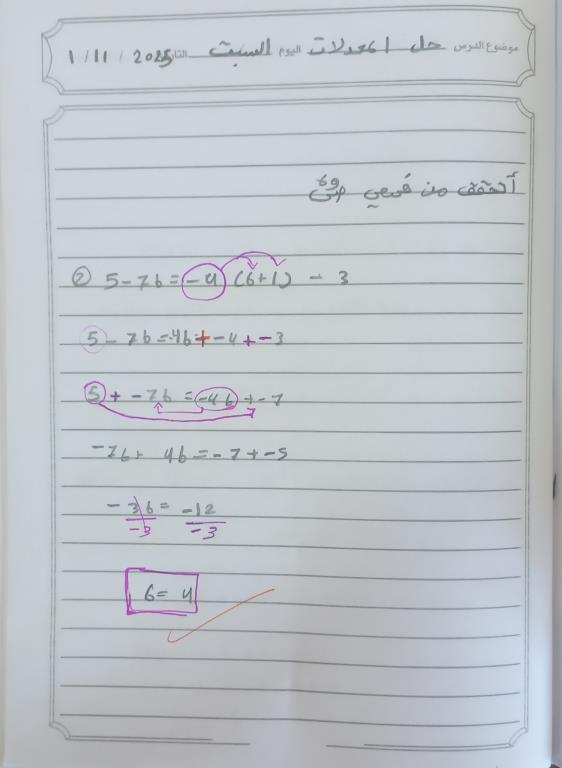 موضوع الدرس حل المعادلات اليوم السبت التاريخ 1 / 11 / 2025
أتحقق من فهمي ص 69
② 5 - 7b = -4 (b+1) - 3
5 - 7b = -4b + -4 + -3
5 + -7b = -4b + -7
-7b + 4b = -7 + -5
-3b/-3 = -12/-3
b = 4